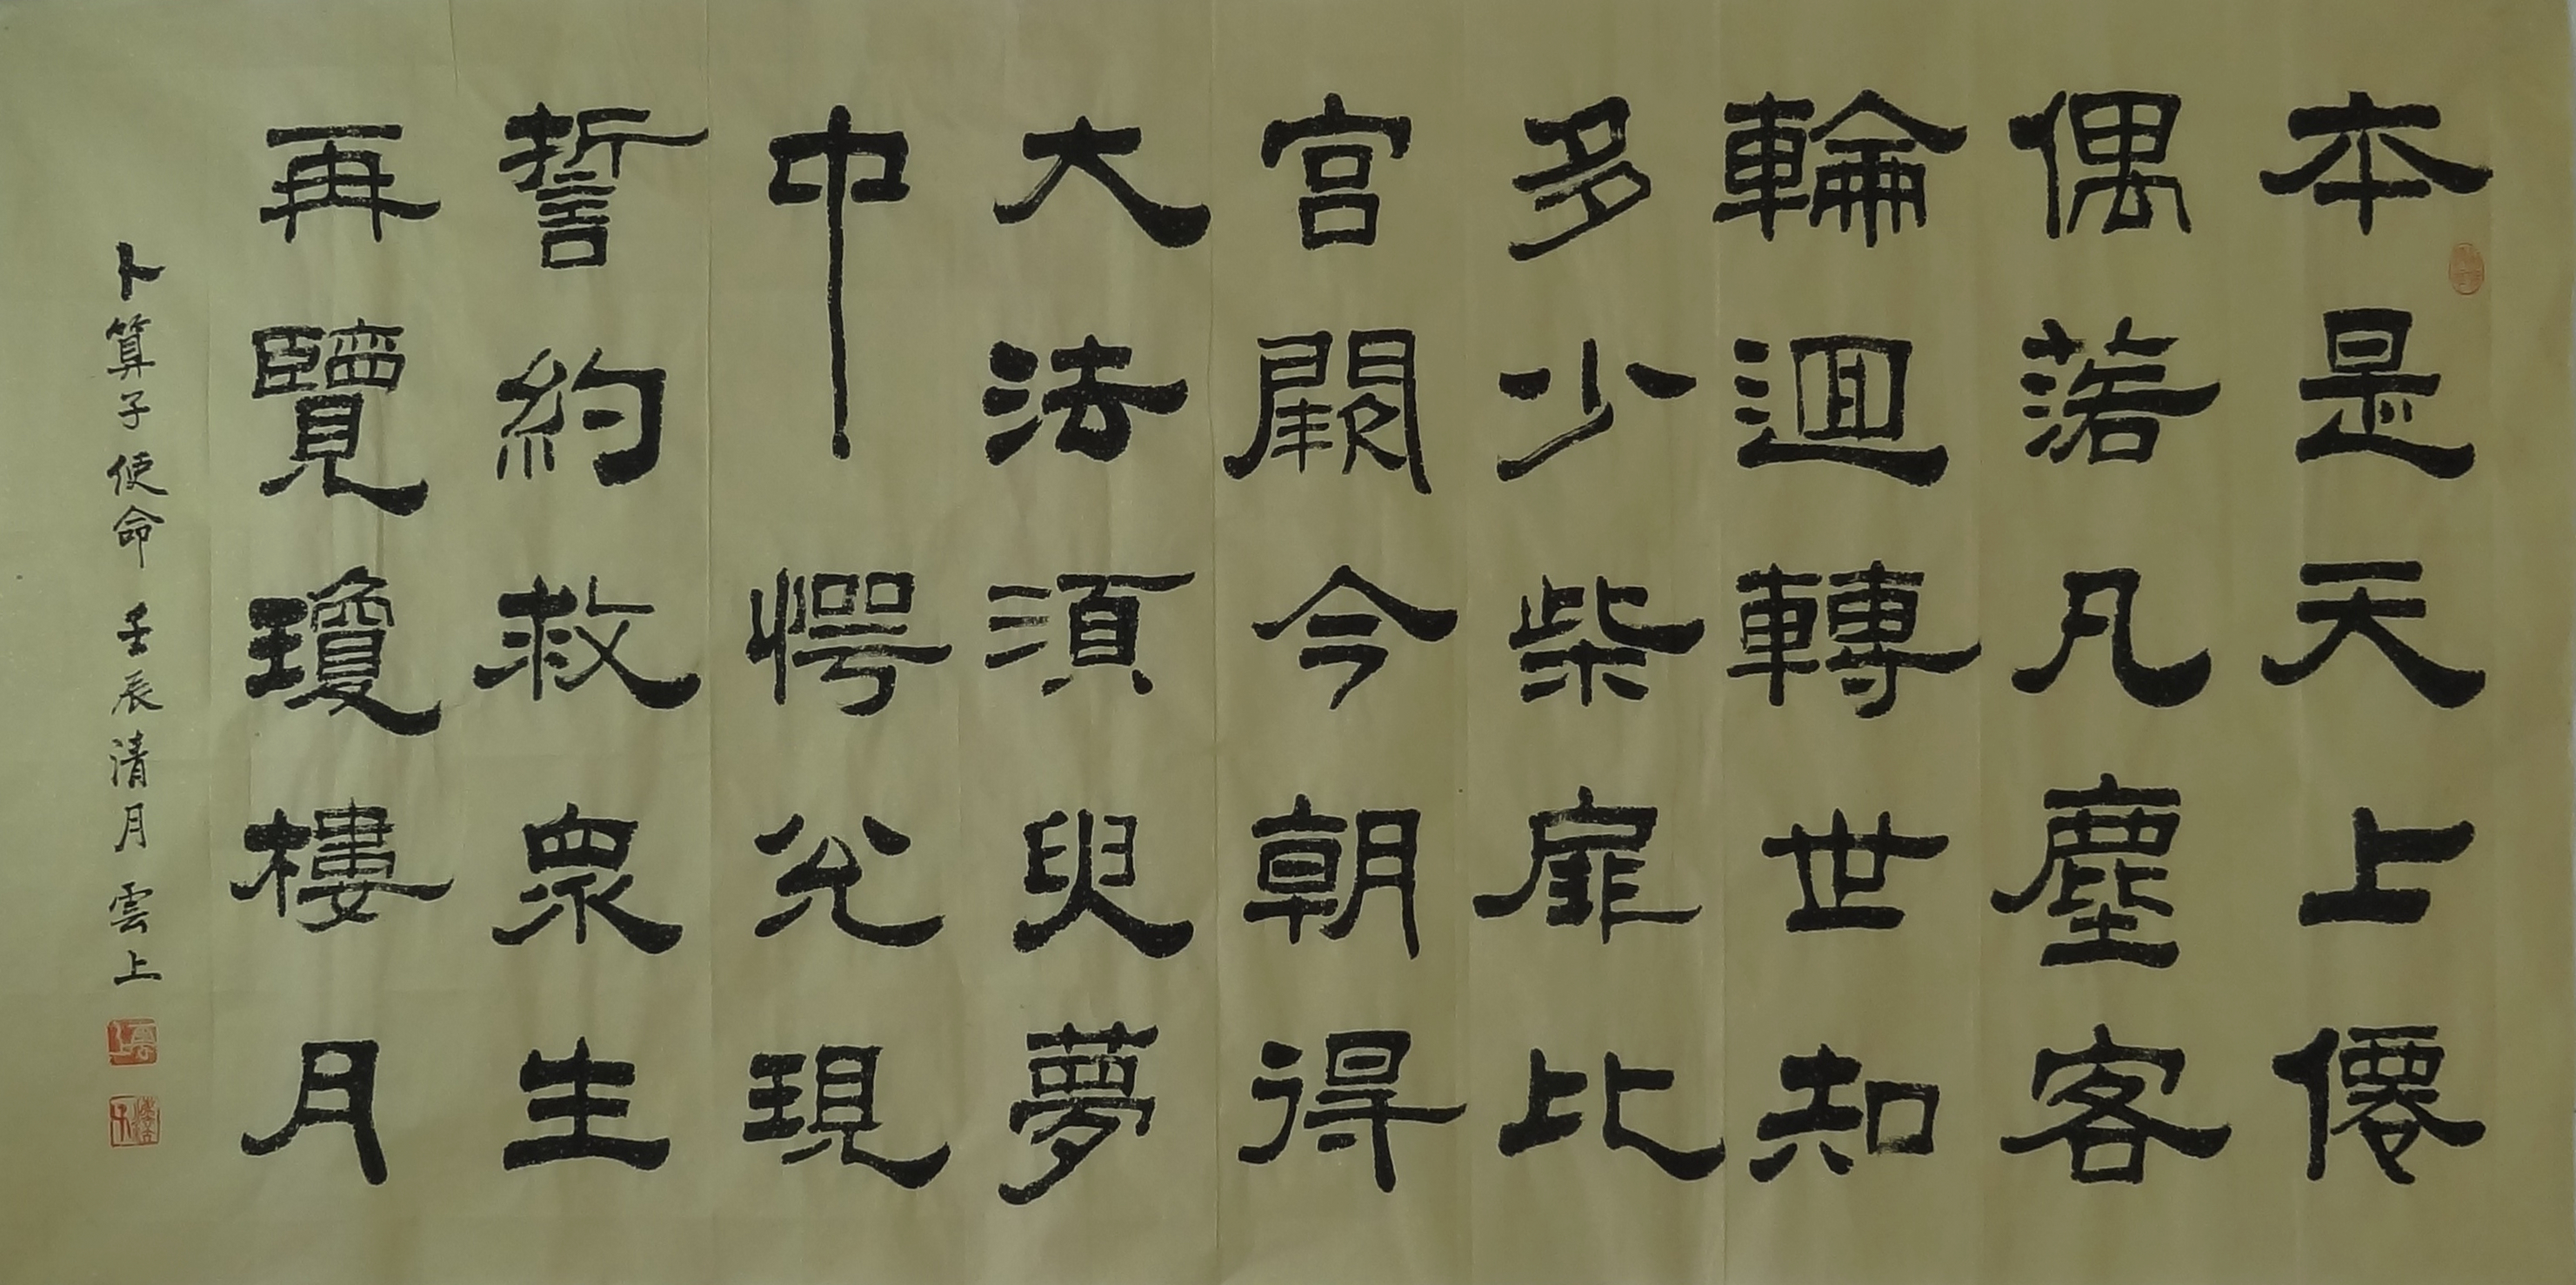 本是天上僊
偶落凡塵客
輪迴轉世知
多少柴扉比
宮闕今朝得
大法須臾夢
中愕兊現
誓約救眾生
再覽瓊樓月
卜算子使命 壬辰清月 雲上
雲上